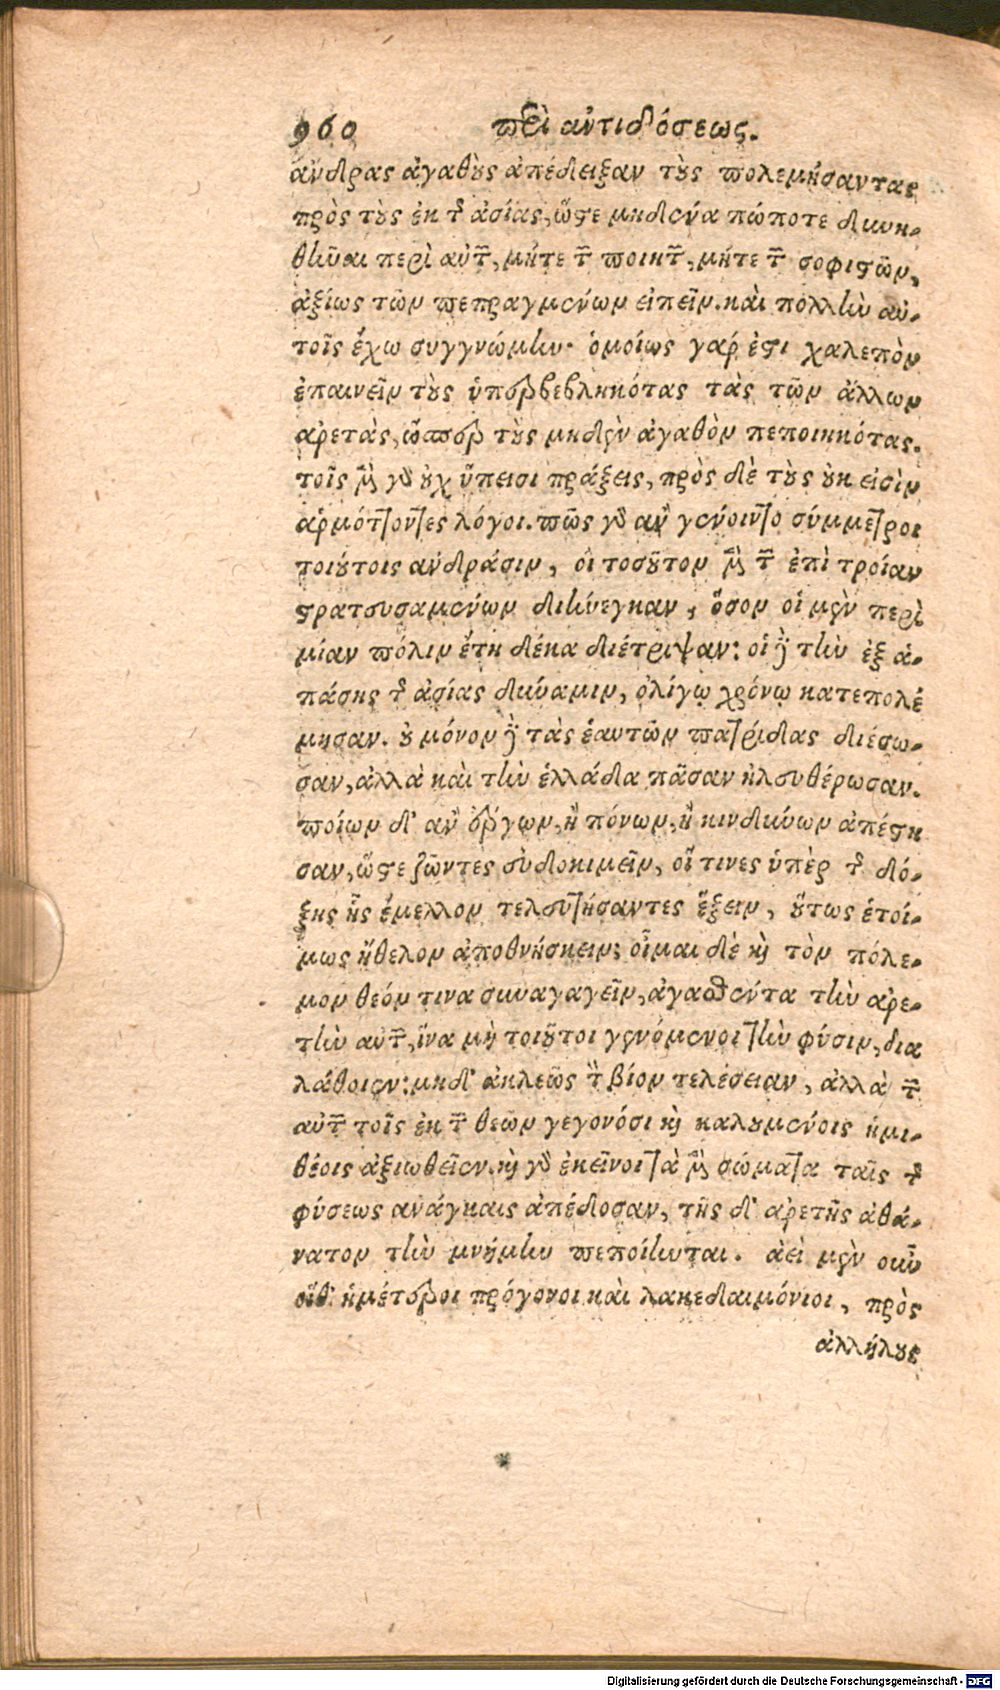 960 περὶ ἀντιδόσεως.
ἄνδρας ἀγαθοὺς ἀπέδειξαν τοὺς πολεμήσαντας
πρὸς τοὺς ἐκ τῆς ἀσίας, ὥστε μηδένα πώποτε δυνη-
θῆναι περὶ αὐτῶν, μήτε τῶν ποιητῶν, μήτε τῶν σοφιστῶν,
ἀξίως τῶν πεπραγμένων εἰπεῖν. καὶ πολλὴν αὐ-
τοῖς ἔχω συγγνώμην· ὁμοίως γάρ ἐστι χαλεπὸν
ἐπαινεῖν τοὺς ὑπερβεβληκότας τὰς τῶν ἄλλων
ἀρετὰς, ὥσπερ τοὺς μηδὲν ἀγαθὸν πεποιηκότας.
τοῖς μὲν γὰρ οὐχ ὕπεισι πράξεις, πρὸς δὲ τοὺς οὐκ εἰσὶν
ἁρμόττοντες λόγοι. πῶς γὰρ ἂν γένοιντο σύμμετροι
τοιούτοις ἀνδράσιν, οἳ τοσοῦτον μὲν τῶν ἐπὶ τροίαν
στρατευσαμένων διήνεγκαν, ὅσον οἱ μὲν περὶ
μίαν πόλιν ἔτη δέκα διέτριψαν: οἱ δὲ τὴν ἐξ ἁ-
πάσης τῆς ἀσίας δύναμιν, ὀλίγῳ χρόνῳ κατεπολέ
μησαν. οὐ μόνον δὲ τὰς ἑαυτῶν πατρίδας διέσω-
σαν, ἀλλὰ καὶ τὴν ἑλλάδα πᾶσαν ἠλευθέρωσαν.
ποίων δ' ἂν ἔργων, ἢ πόνων, ἢ κινδύνων ἀπέστη
σαν, ὥστε ζῶντες εὐδοκιμεῖν, οἵ τινες ὑπὲρ τῆς δό-
ξης ἧς ἔμελλον τελευτήσαντες ἕξειν, οὕτως ἑτοί-
μως ἤθελον ἀποθνήσκειν; οἶμαι δὲ καὶ τὸν πόλε-
μον θεόν τινα συναγαγεῖν, ἀγασθέντα τὴν ἀρε-
τὴν αὐτῶν, ἵνα μὴ τοιοῦτοι γενόμενοι τὴν φύσιν, δια
λάθοιεν: μηδ' ἀκλεῶς τὸν βίον τελέσειαν, ἀλλὰ τῶν
αὐτῶν τοῖς ἐκ τῶν θεῶν γεγονόσι καὶ καλουμένοις ἡμι-
θέοις ἀξιωθεῖεν. καὶ γὰρ ἐκεῖνοι τὰ μὲν σώματα ταῖς τῆς
φύσεως ἀνάγκαις ἀπέδοσαν, τῆς δ' ἀρετῆς ἀθά-
νατον τὴν μνήμην πεποίηνται. ἀεὶ μὲν οὖν
οἵθ' ἡμέτεροι πρόγονοι καὶ λακεδαιμόνιοι, πρὸς
ἀλλήλους
Digitalisierung gefördert durch die Deutsche Forschungsgemeinschaft - DFG